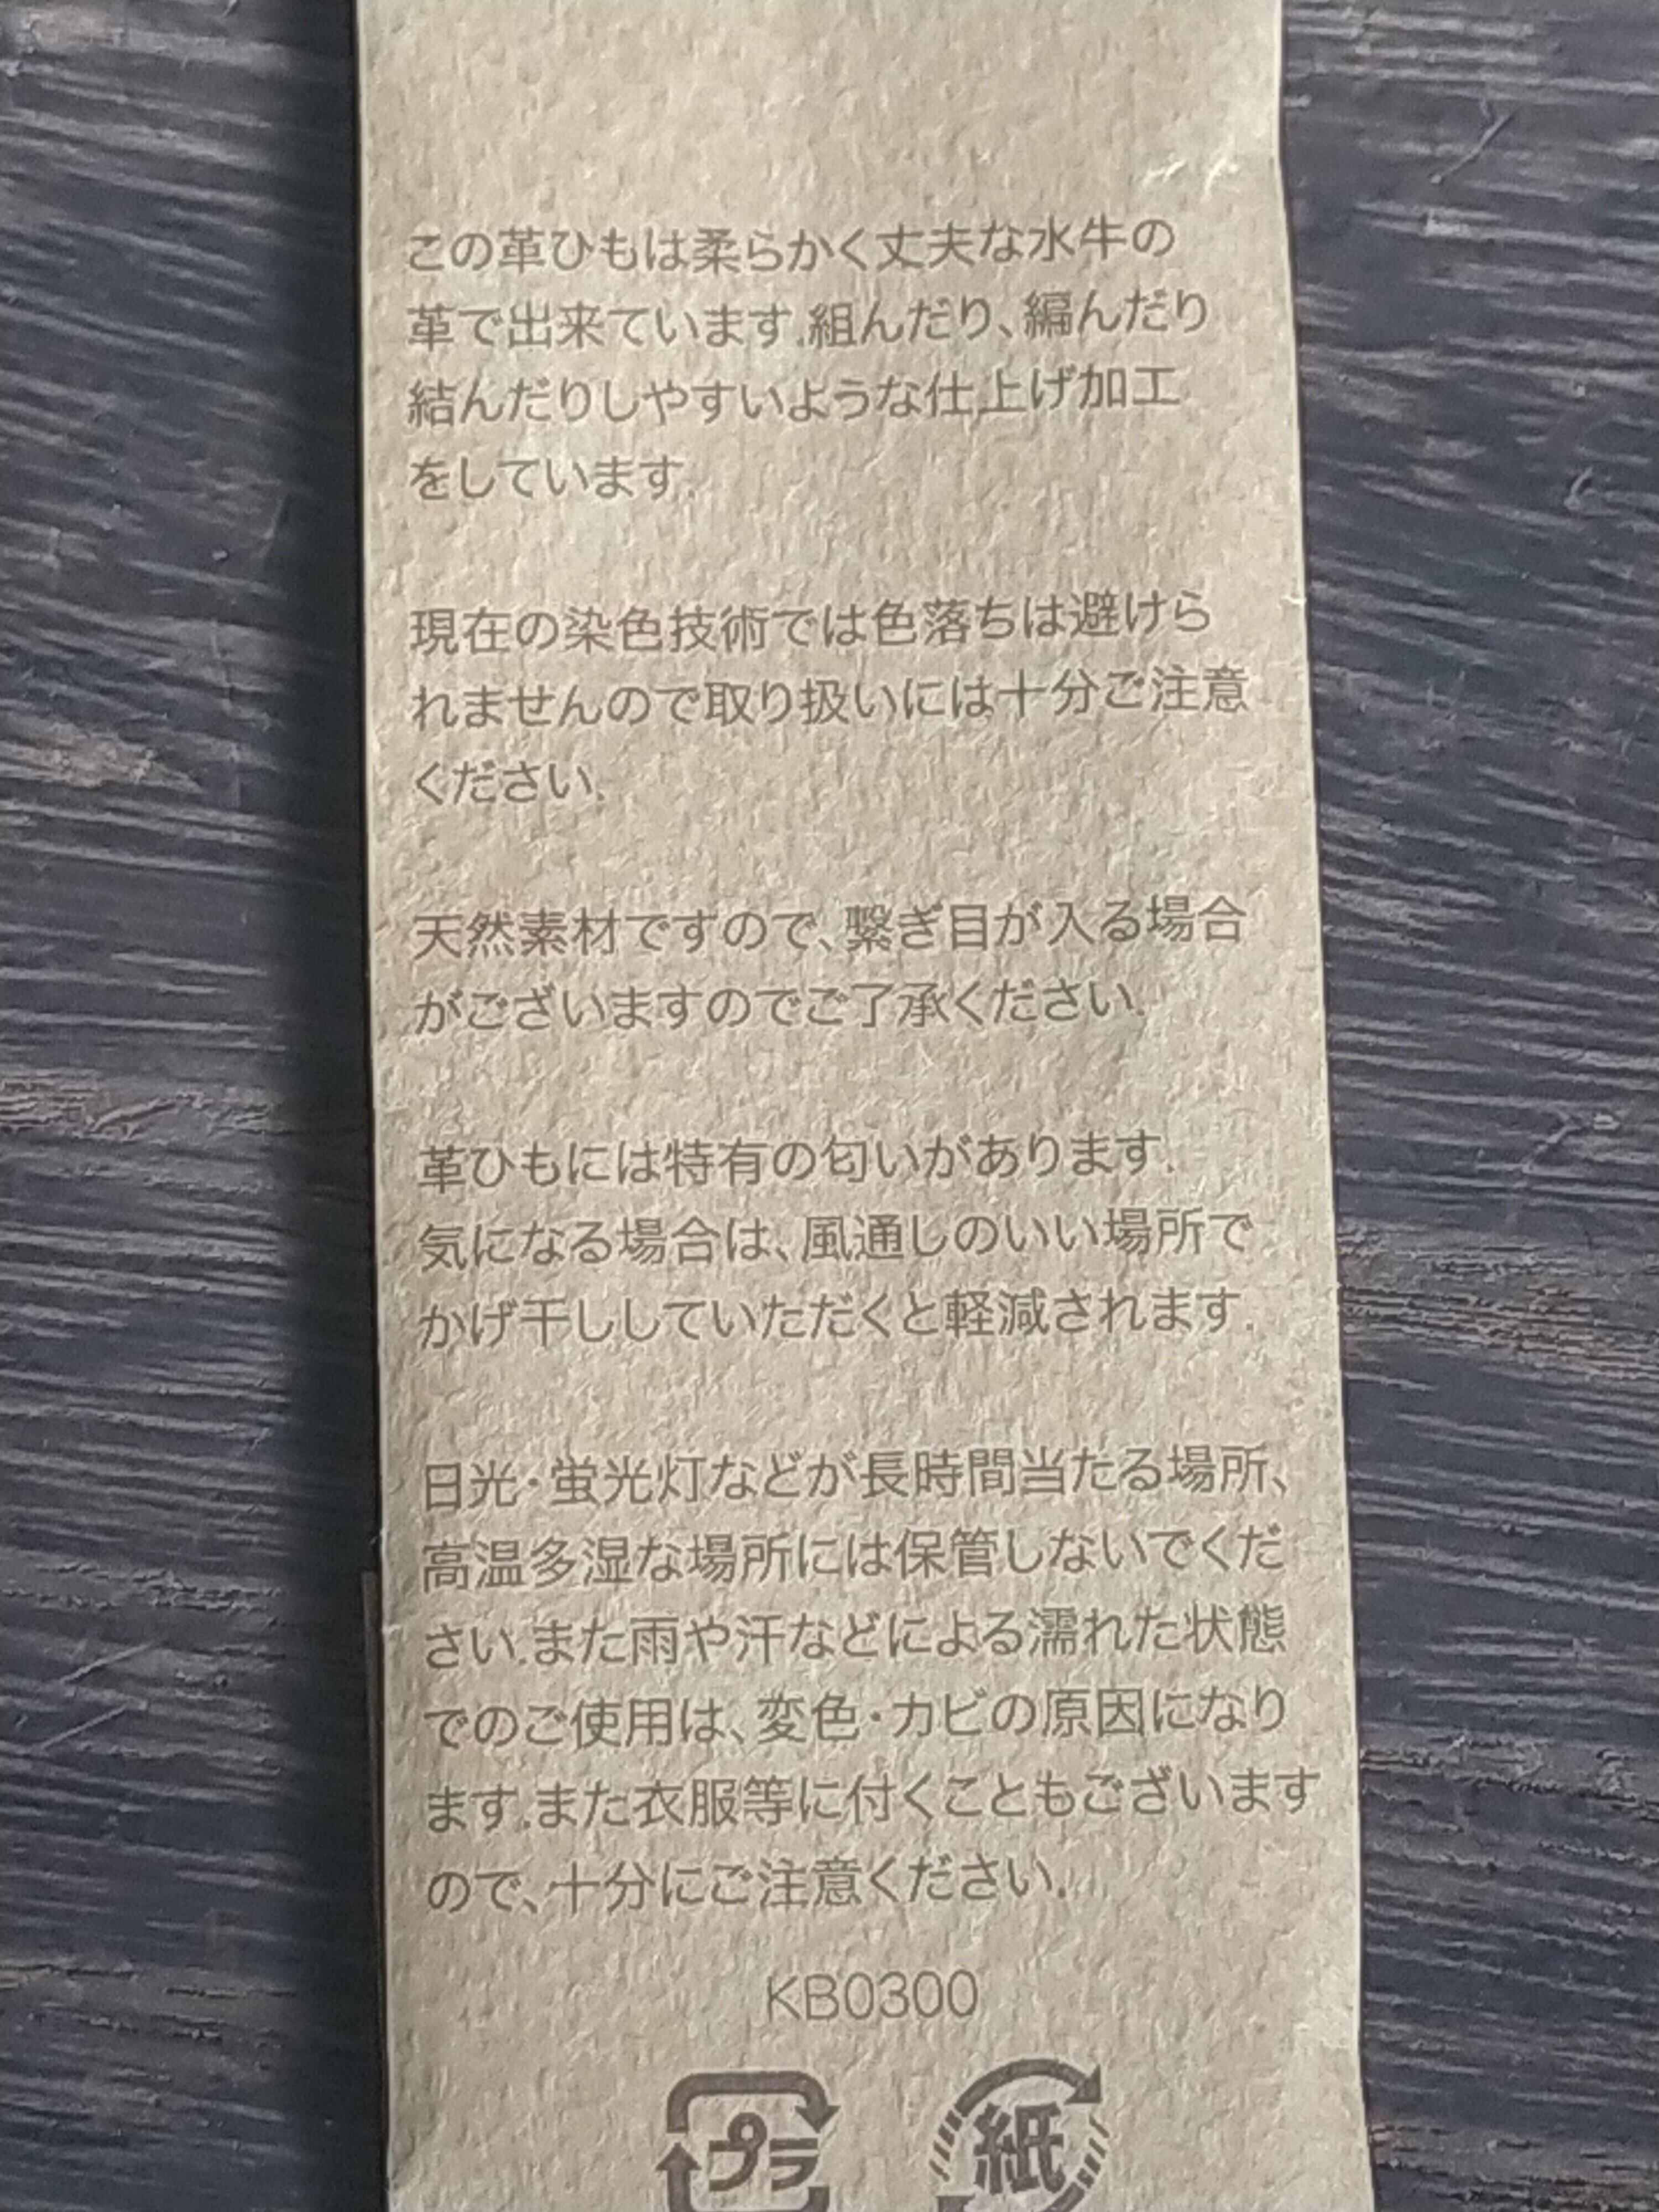 この革ひもは柔らかく丈夫な水牛の
革で出来ています.組んだり、編んだり
結んだりしやすいような仕上げ加工
をしています.
現在の染色技術では色落ちは避けら
れませんので取り扱いには十分ご注意
ください.
天然素材ですので、繋ぎ目が入る場合
がございますのでご了承ください.
革ひもには特有の匂いがあります.
気になる場合は、風通しのいい場所で
かげ干ししていただくと軽減されます.
日光・蛍光灯などが長時間当たる場所、
高温多湿な場所には保管しないでくだ
さい.また雨や汗などによる濡れた状態
でのご使用は、変色・カビの原因になり
ます.また衣服等に付くこともございます
ので、十分にご注意ください.
KB0300
プラ 紙